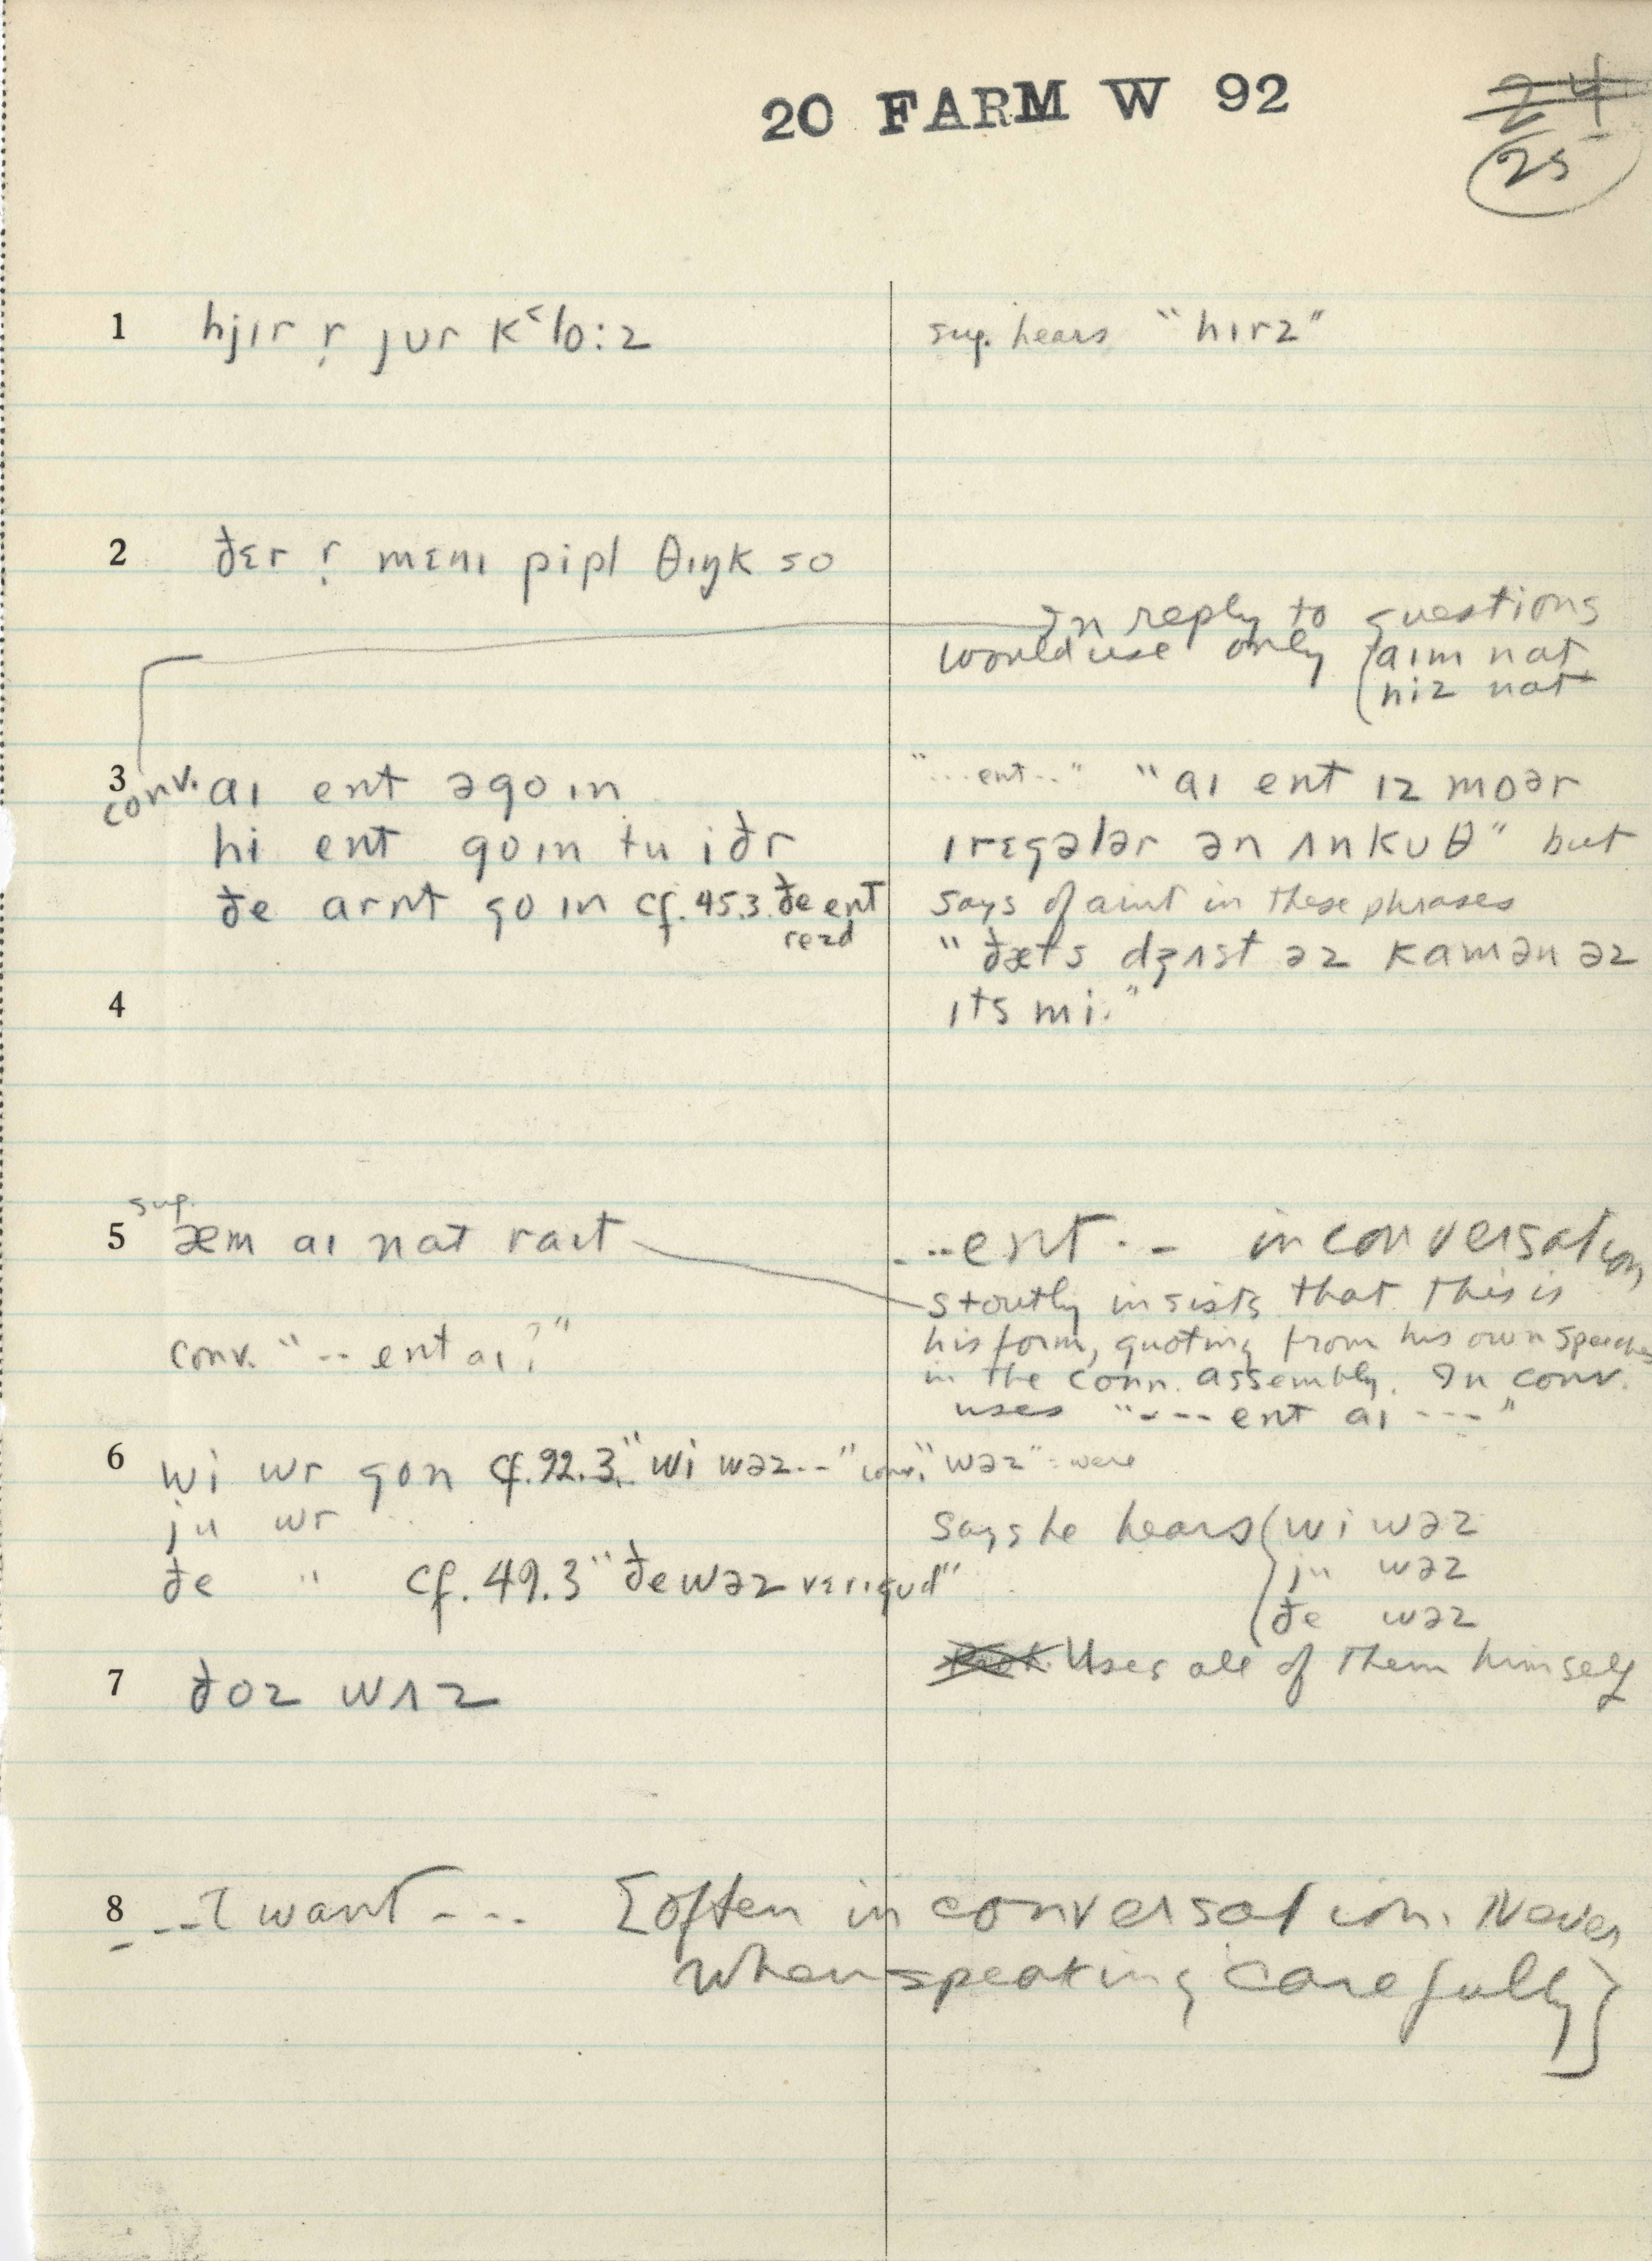 20 FARM W 92
24
25
1 hjɪr r̩ jʊr kʿlo:z
sug. hears "hɪrz"
2 ðɛr r̩ mɛnɪ pipl θɪŋk so
In reply to questions
would use only aɪm nat
hiz nat
3 conv. aɪ ent əgoɪn
"...ent.." "aɪ ent ɪz moər
hi ent goɪn tu iðr
ɪrɛgələr ən ʌnkuθ" but
ðe arnt goɪn cf. 45.3 ðe ent
says of aint in these phrases
"ðæts dʒʌst əz kamən əz
4
ɪts mi."
sug.
5 æm aɪ nat raɪt
...ent.. in conversation
stoutly insists that this is
his form, quoting from his own speeches
conv. "-- ent aɪ?"
in the conn. assembly. In conv.
uses "--- ent aɪ ---"
6 wi wr gon cf. 92.3 "wi wəz--" conv. "wəz" = were
ju wr "
says he hears wi wəz
ju wəz
ðe " cf. 49.3 "ðe wəz vɛrɪ gud"
ðe wəz
Uses all of them himself
7 ðoz wʌz
8 --I want--- [often in conversation. Never
when speaking carefully]